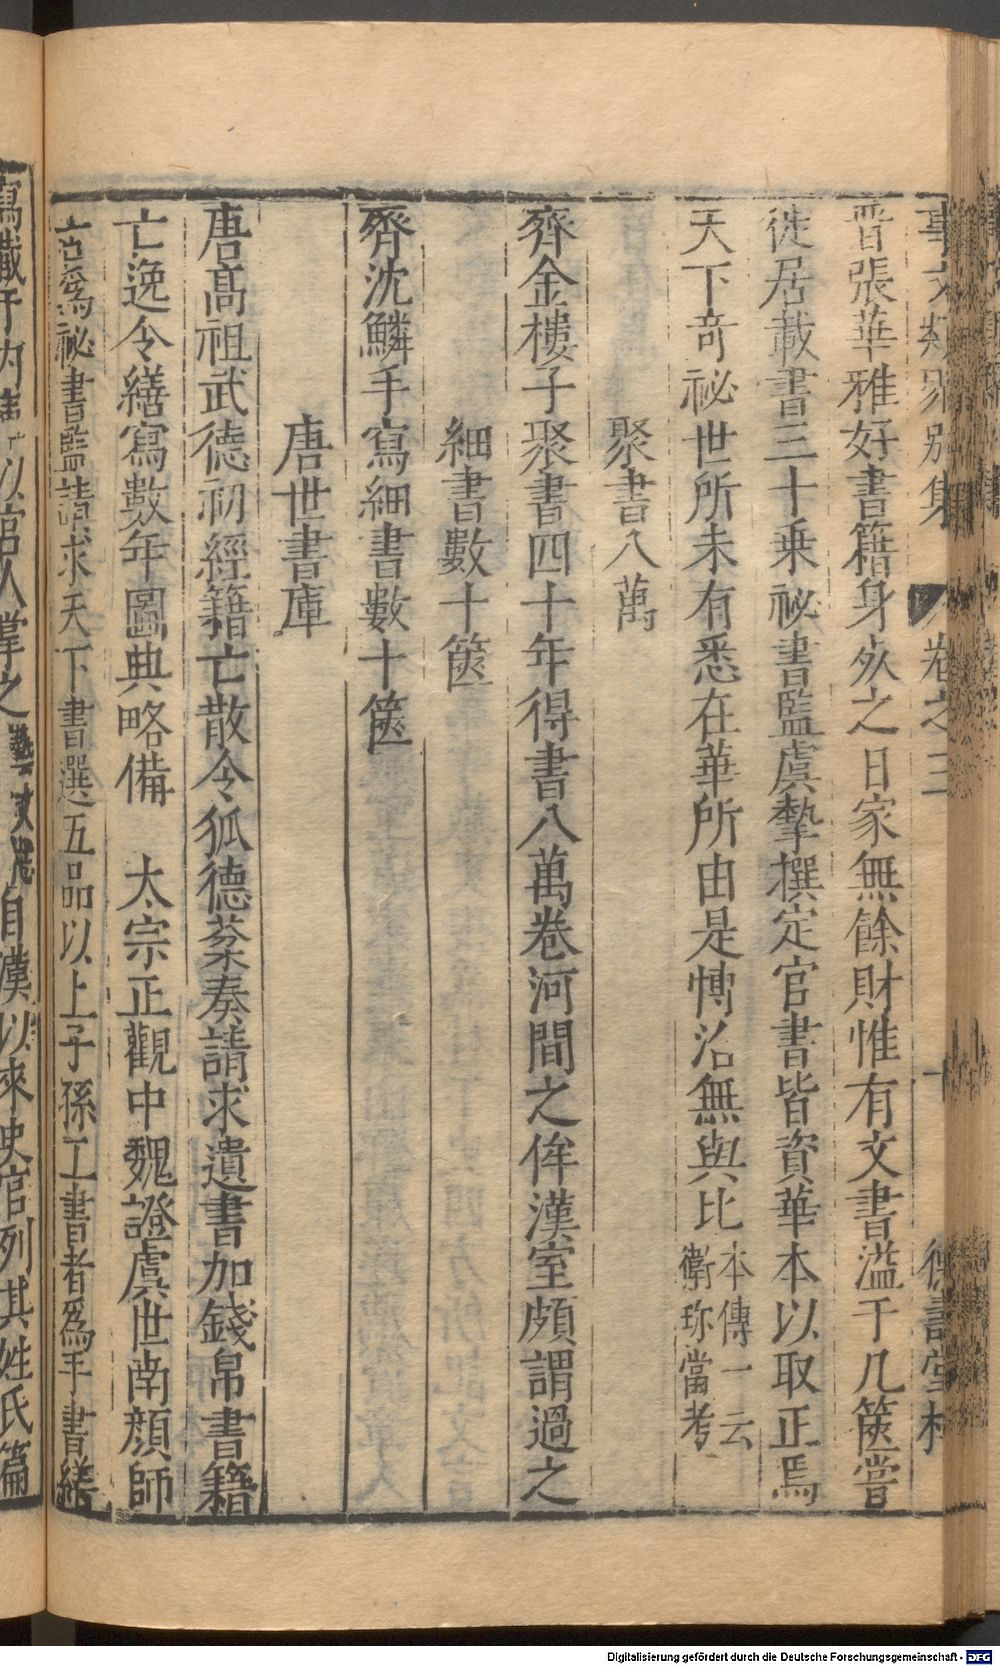 事文類聚別集 卷之三 十 德壽堂梓
晋張華雅好書籍身死之日家無餘財惟有文書溢于几篋嘗
徙居載書三十乗祕書監虞摯撰定官書皆資華本以取正焉
天下奇祕世所未有悉在華所由是愽洽無與比本傳一云衛珎當考
聚書八萬
齊金樓子聚書四十年得書八萬卷河間之侔漢室頗謂過之
細書數十篋
齊沈鱗手寫細書數十篋
唐世書庫
唐髙祖武德初經籍亡散令狐德棻奏請求遺書加錢帛書籍
亡逸令繕寫數年圖典略備 太宗正觀中魏證虞世南顔師
古爲祕書監請求天下書選五品以上子孫工書者爲手書繕
寫藏于内庫以宮人掌之藝文志自漢以來史官列其姓氏篇
Digitalisierung gefördert durch die Deutsche Forschungsgemeinschaft - DFG